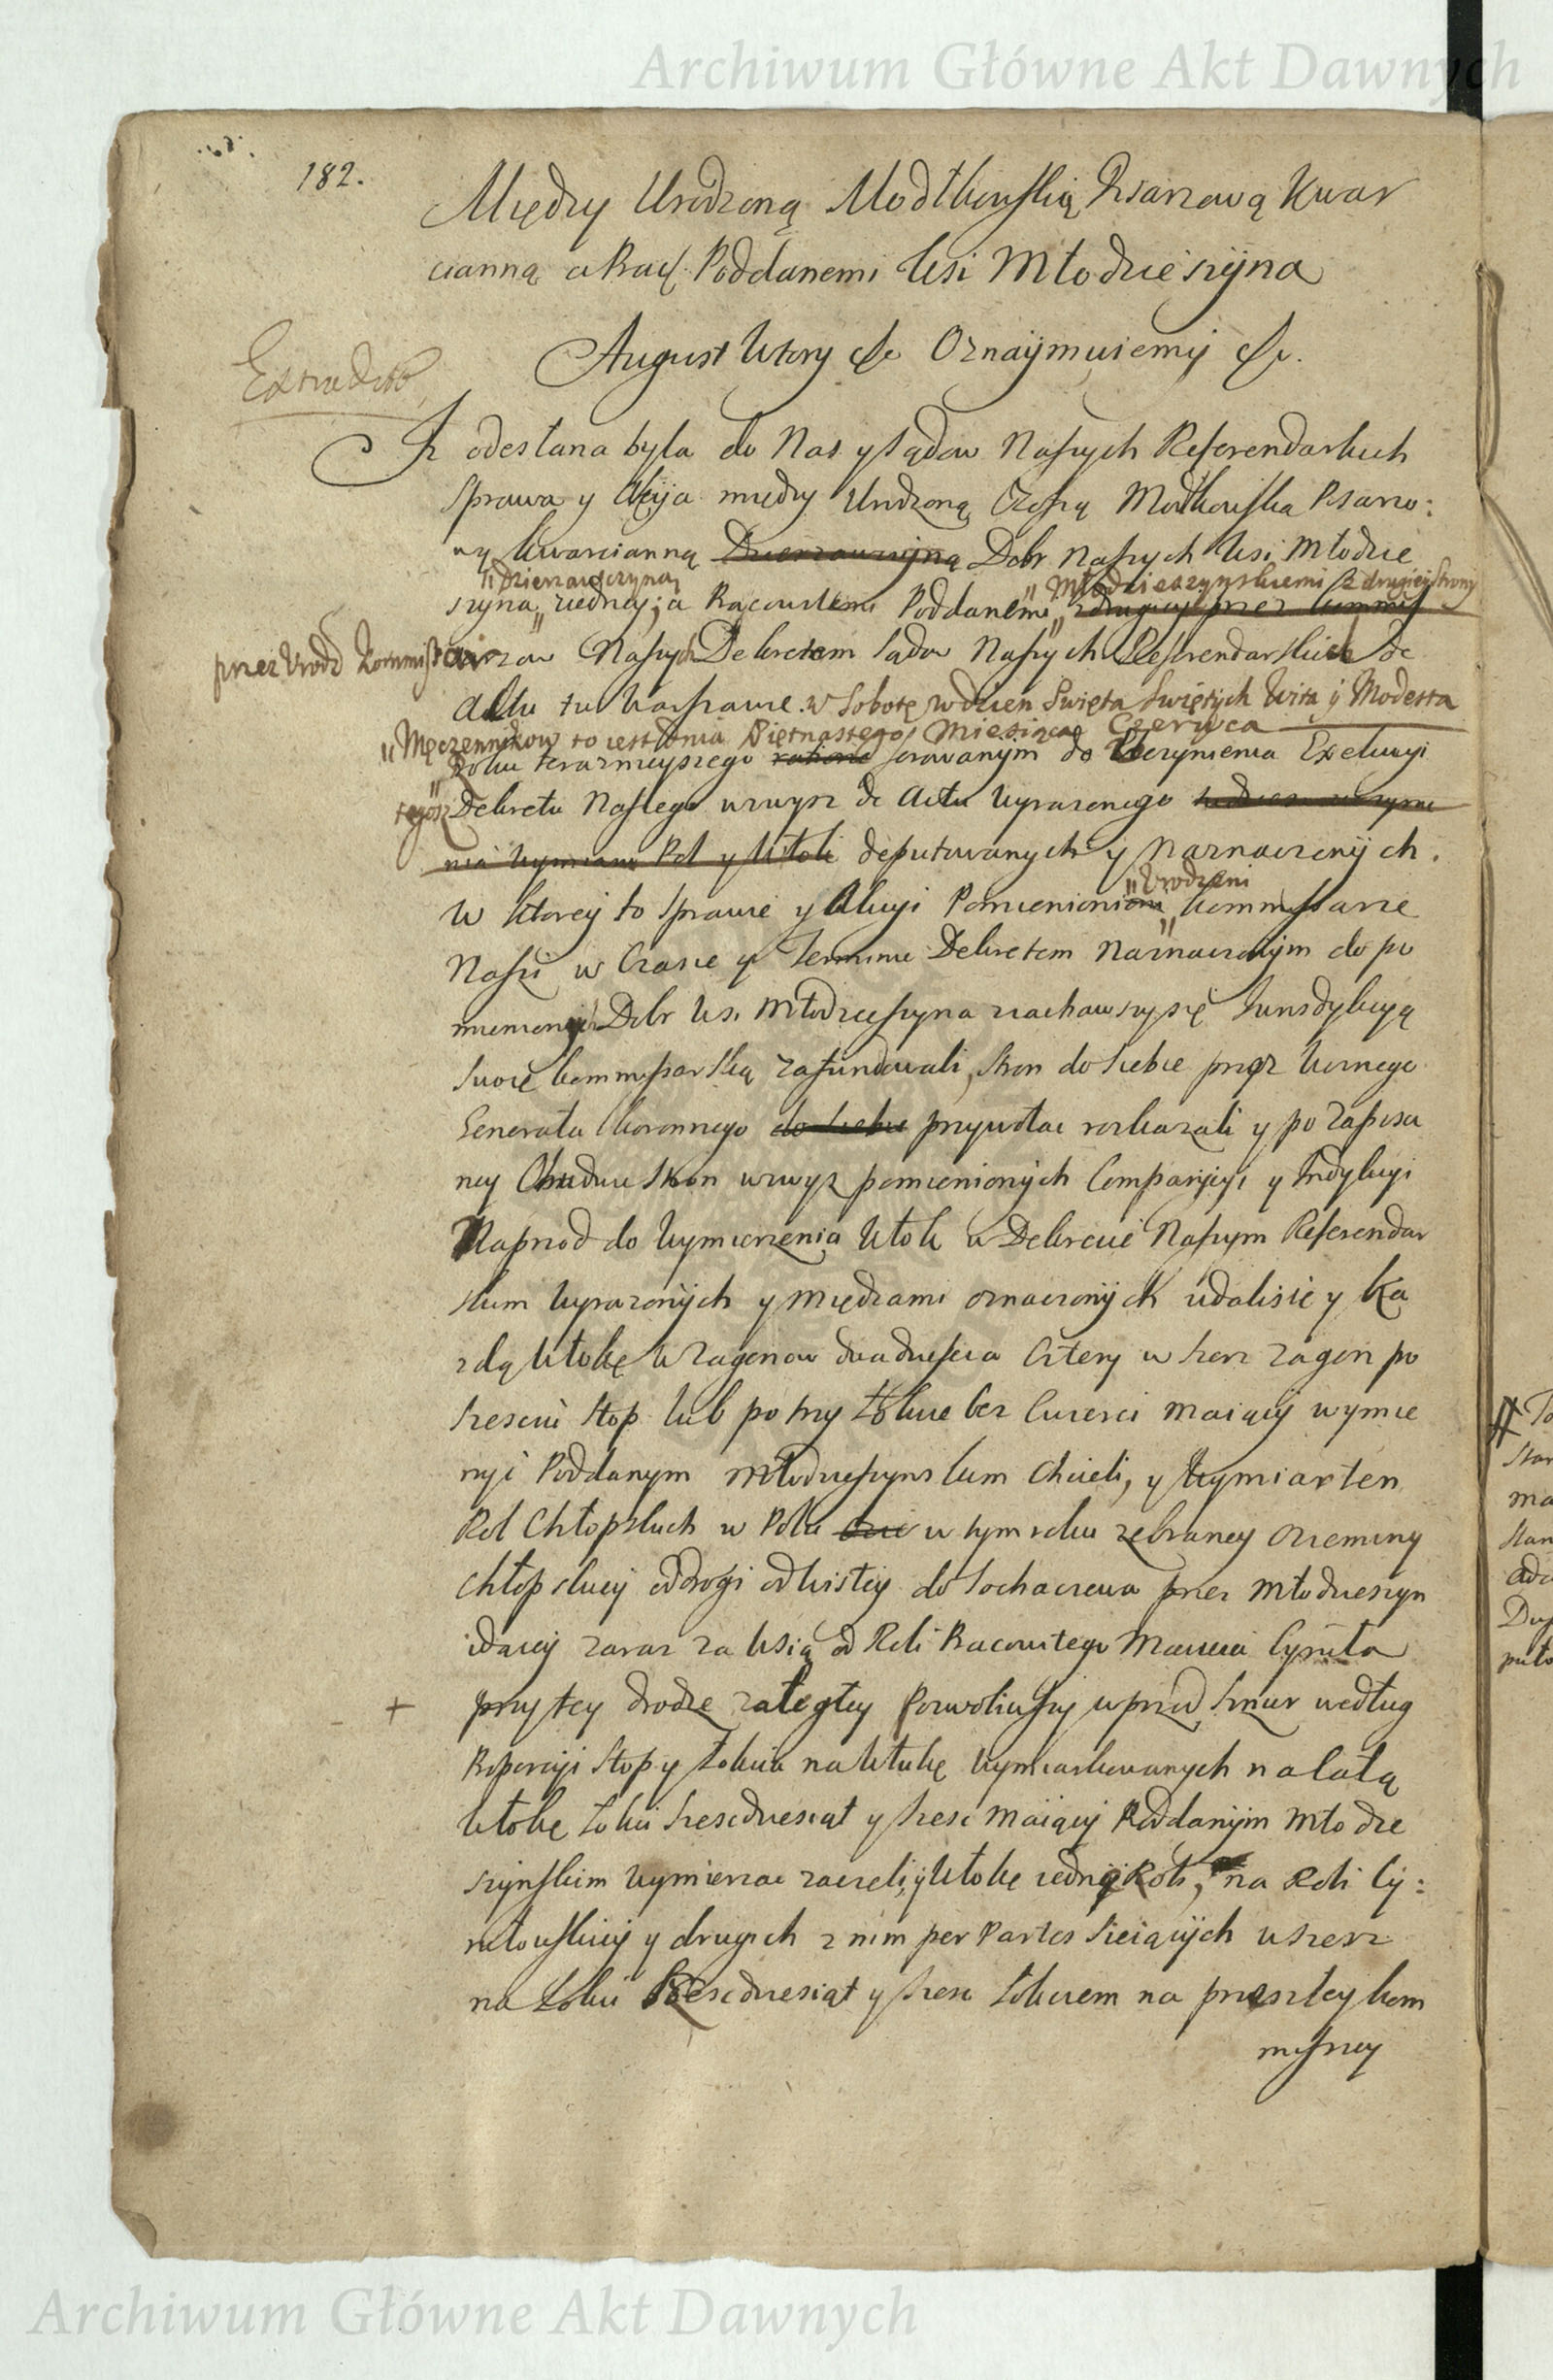 Archiwum Główne Akt Dawnych
182.
Między Urodzoną Modtkowską Pisarzową Kwar
cianną a Prac. Poddanemi Wsi Młodzieszyna
August Wtory &c Oznaymuiemy &c.
Extradit
Iz odesłana była do Nas y Sądow Naszych Referendarskich
Sprawa y Akcyja między Urodzoną Zofią Modtkowską Pisarzo:
wą kwarcianną Dzierzawczyną Dobr Naszych Wsi Młodzie
"Dzierzawczyną "Młodzieszynskiemi z drugiey strony
szyna "z iedney; a Pracowitemi Poddanemi" z drugiey przez Kommiss
przez Urodz Kommissarzow Naszych Dekretem Sądow Naszych Referendarskich de
Actu tu w Warszawie w Sobotę w dzien Swięta Swiętych Wita y Modesta
"Męczennikow to iest dnia Piętnastego Miesiąca Czerwca
Roku teraznieyszego ferowanym do Uczynienia Exekucyi
tegosz Dekretu Naszego wzwysz de Actu Wyrazonego
Pol y Włok deputowanych y Naznaczonych.
"Urodzeni
W ktorey to Sprawie y Akcyi Pomienieni "Kommissarze
Naszi w Czasie y Terminie Dekretem Naznaczonym do po
mienionych Dobr Wsi Młodzieszyna ziachawszy się Jurisdykcyą
Swoię kommissarską zafundowali, Stron do siebie przez Woznego
Generała Koronnego do siebie przywołac roskazali y po zapisa
ney Obudwu Stron wzwysz pomienionych Comparycyi y Indykcyi
Naprzod do Wymierzenia Włok w Dekrecie Naszym Referendar
skim Wyrazonych y Międzami oznaczonych udali się y Ka
zdą Włokę w Zagonow dwadziescia Cztery w szerz zagon po
szesciu Stop lub po trzy Łokcie bez Cwierci maiący wymie
rzyc Poddanym Młodzieszynskim Chcieli, y Wymiar ten
Rol Chłopskich w Polu w tym roku zebraney Ozieminy
Chłopskiey od drogi od Wisłey do Sochaczewa przez Młodzieszyn
idącey zaraz za Wsią od Roli Pracowitego Macieia Cyrula
+ przy tey drodze zaległey Pozwoliwszy wprzod Sznur według
Proporcyi Stop y Łokcia na Włokę Wymiarkowanych na całą
Włokę Łokci Szescdziesiąt y szesc maiący Poddanym Młodzie
szynskim Wymierzac zaczeli, y Włokę iedną Roli, na Roli Cy:
rulowskiey y drugich z nim per Partes sieiących wszerz
na Łokci Szescdziesiąt y szesc Łokciem na przeszłey kom
missyey
Archiwum Główne Akt Dawnych